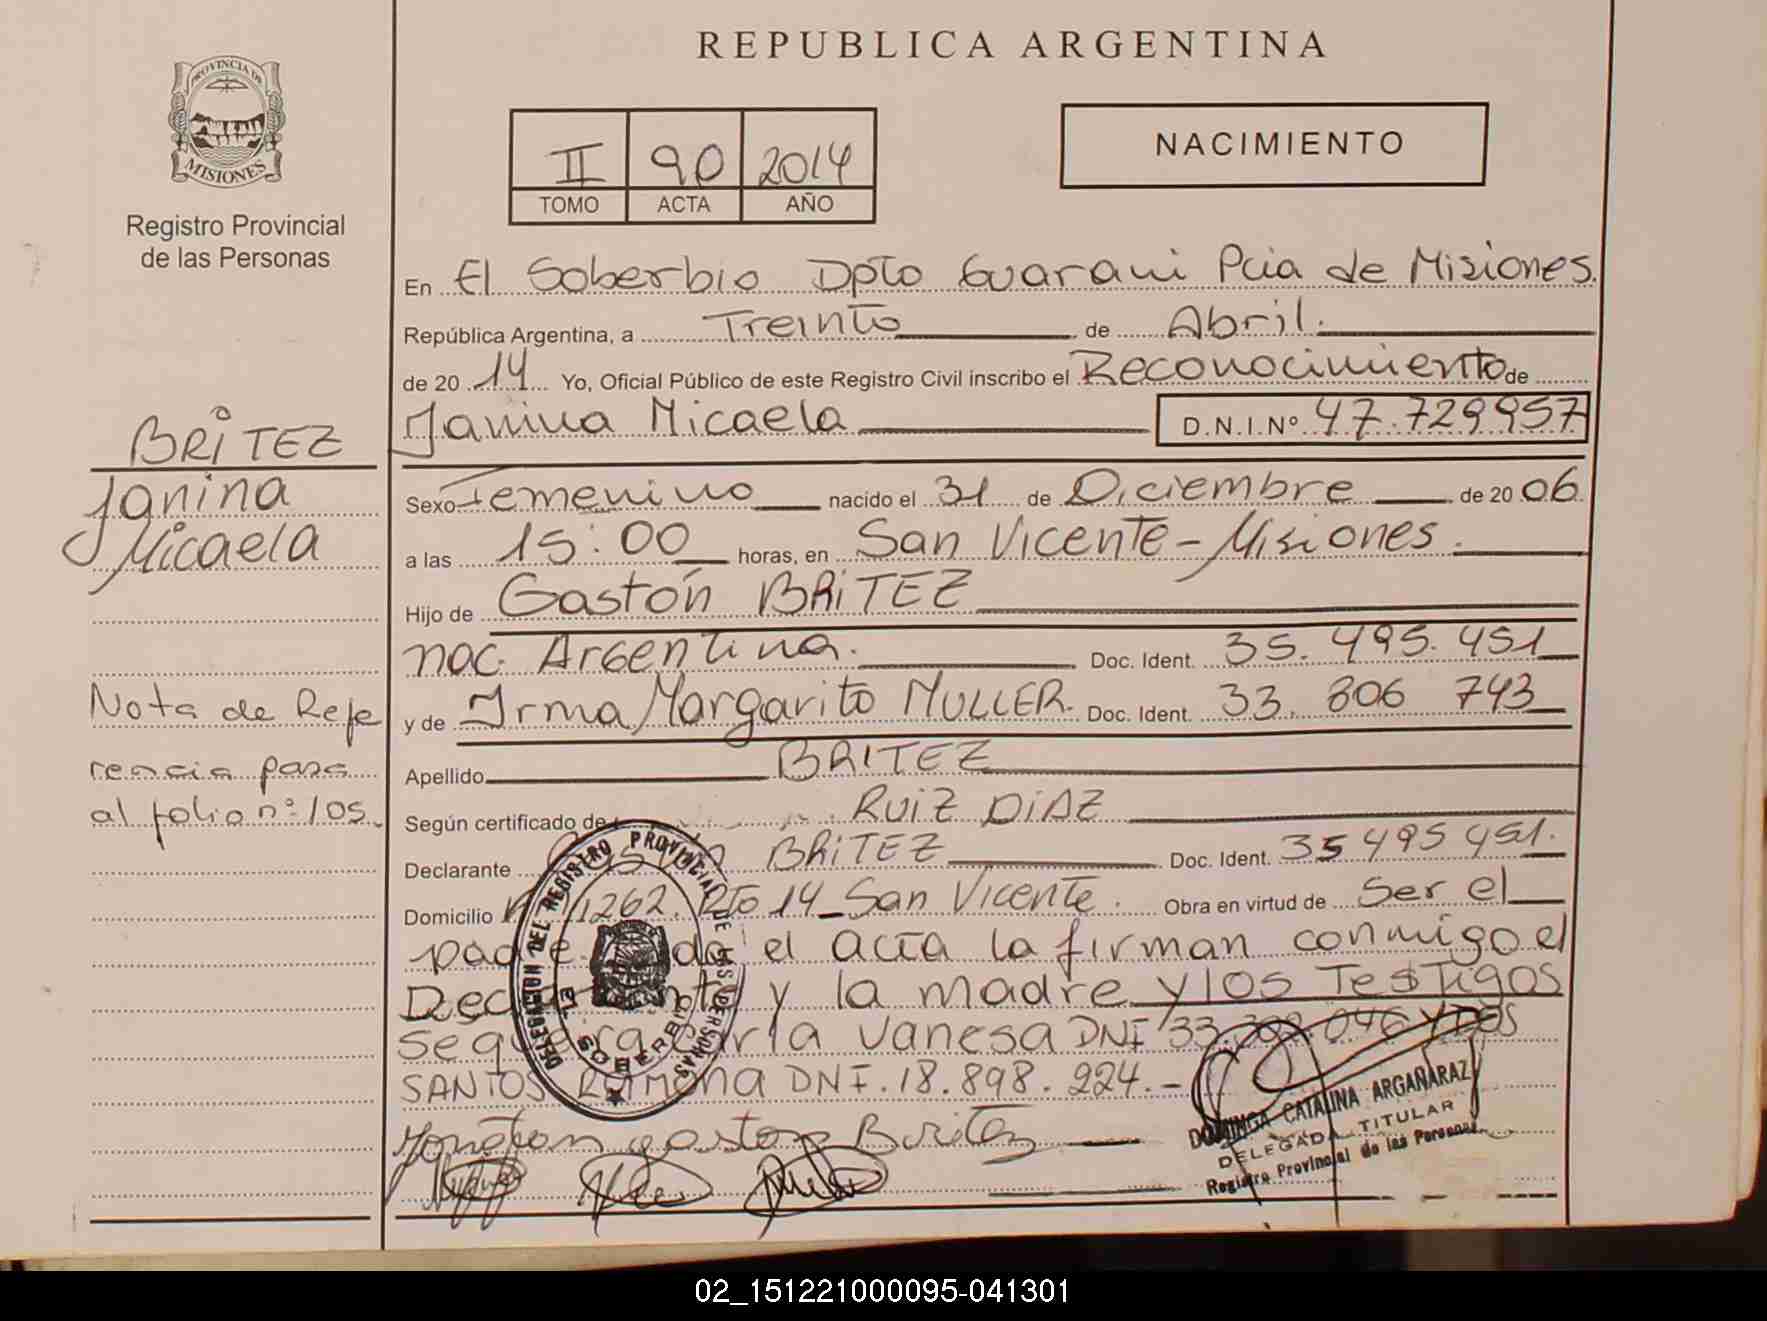 REPUBLICA ARGENTINA
PROVINCIA DE
MISIONES
Registro Provincial
de las Personas
II 90 2014
TOMO ACTA AÑO
NACIMIENTO
En El Soberbio Dpto Guarani Pcia de Misiones.
República Argentina, a Treinta de Abril.
de 2014 Yo, Oficial Público de este Registro Civil inscribo el Reconocimiento de
Janina Micaela D.N.I.Nº 47.729957
Sexo Femenino nacido el 31 de Diciembre de 2006
a las 15:00 horas, en San Vicente - Misiones.
Hijo de Gastón BRITEZ
nac. Argentina. Doc. Ident. 35.495.451
y de Irma Margarita MULLER. Doc. Ident. 33.806 743
Apellido BRITEZ
Según certificado de RUIZ DIAZ
Declarante BRITEZ Doc. Ident. 35495451.
Domicilio 1262. Rto 14 San Vicente. Obra en virtud de Ser el
padre. el acta la firman conmigo el
y la madre y los Testigos
Vanesa DNI 33. .046 y DOS
SANTOS Ramona DNI. 18.898.224.-
Jonaton gaston Britez
BRITEZ
Janina
Micaela
Nota de Refe
rencia pasa
al folio nº 105.
DELEGACION DEL REGISTRO PROVINCIAL DE LAS PERSONAS
EL SOBERBIO
DOMINGA CATALINA ARGAÑARAZ
DELEGADA TITULAR
Registro Provincial de las Personas
02_151221000095-041301